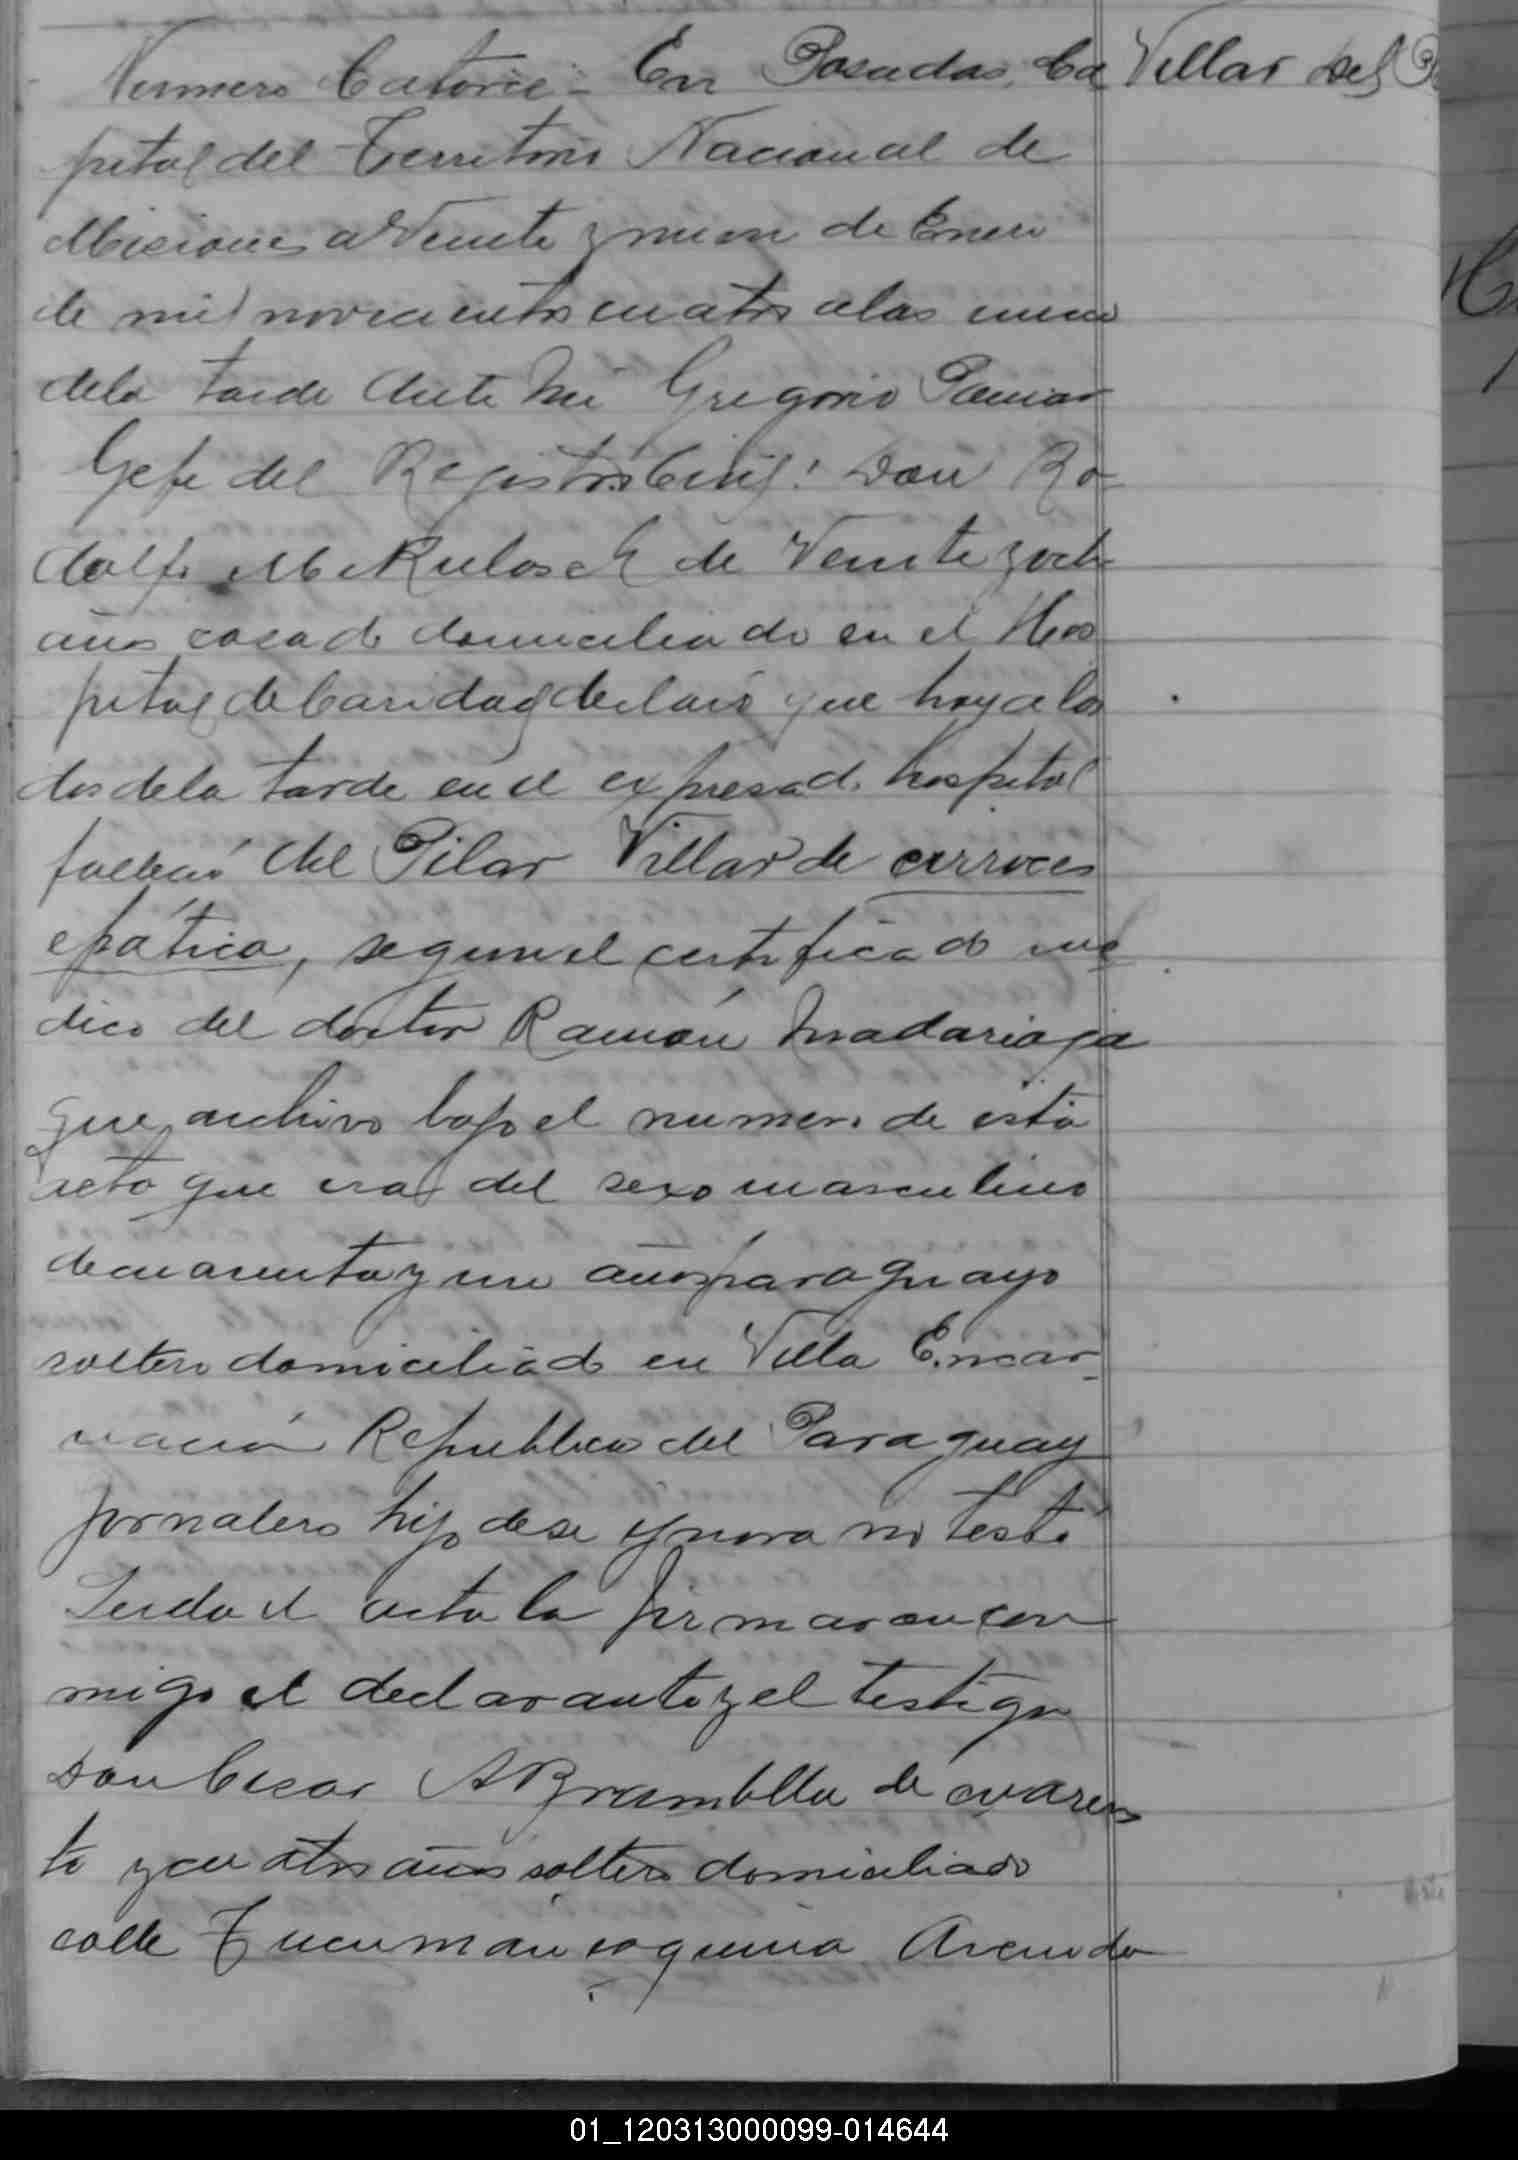 Numero Catorce: En Posadas, Ca
Villar del
pital del Territorio Nacional de
Misiones a Veinte y nueve de Enero
de mil novecientos cuatro a las
de la tarde Ante Mi Gregorio
Gefe del Registro Civil: Don Ro-
dolfo de Veinte y ocho
años casado domiciliado en el Hos
pital de Caridad declaró que hoy a las
dos de la tarde en el expresado hospital
falleció del Pilar Villar de cirroces
epática, segun el certificado me
dico del doctor Ramón Madariaga
que archivo bajo el numero de esta
acta que era del sexo masculino
de cuarenta y un años paraguayo
soltero domiciliado en Villa Encar-
nación Republica del Paraguay
jornalero hijo de se ygnora no testó
Leida el acta la firmaron con
migo el declarante y el testigo
Don Cesar A Brambilla de cuaren
ta y cuatro años soltero domiciliado
calle Tucuman esquina
01_120313000099-014644